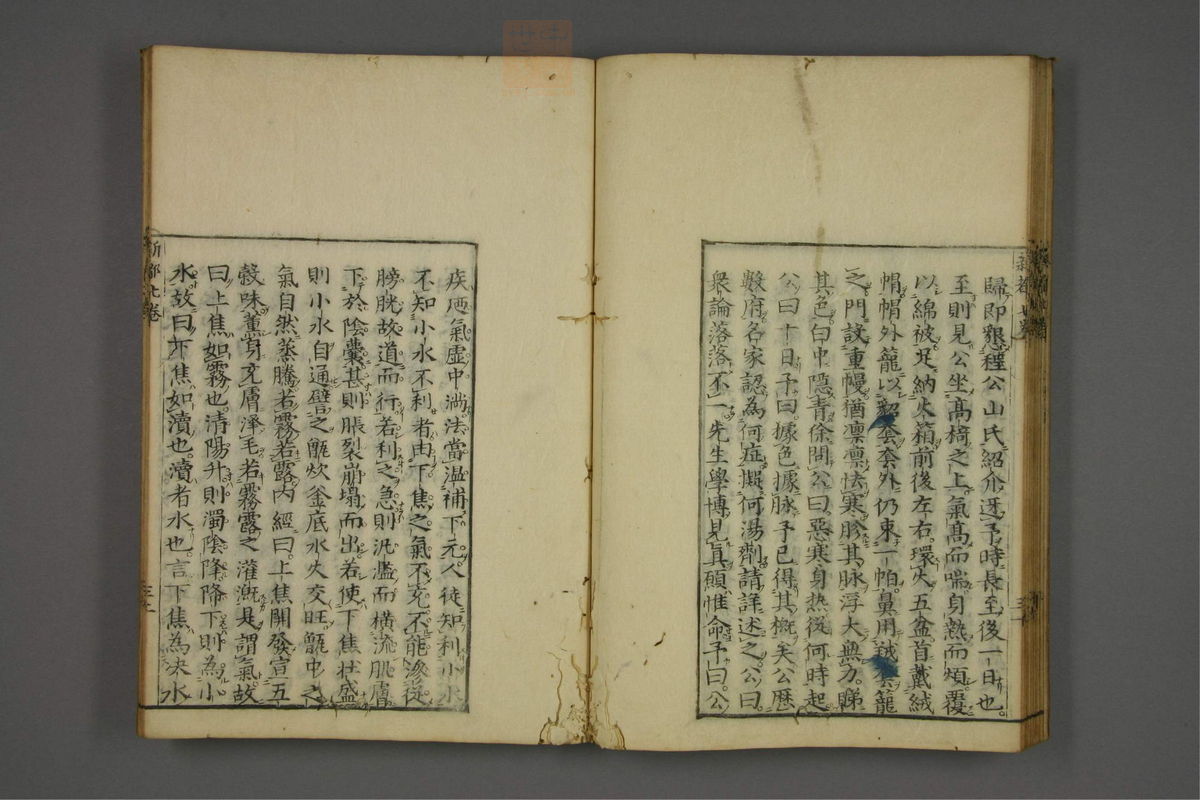 歸即懇程公山氏紹介迓予時長至後一日也
至則見公坐高椅之上氣高而喘身熱而煩覆
以綿被足納火箱前後左右環火五盆首戴絨
帽帽外籠以貂套套外仍束一帕鼻用絨套籠
之門設重幔猶凜凜怯寒胗其脉浮大無力睇
其色白中隱青徐問公曰惡寒身热從何時起
公曰十日予曰據色據脉予已得其概矣公歷
數府名家認為何症擬何湯劑請詳述之公曰
衆論落落不一先生學博見真願惟命予曰公
疾巵氣虛中滿法當溫補下元人徒知利小水
不知小水不利者由下焦之氣不充不能滲從
膀胱故道而行若利之急則汎濫而橫流肌膚
下於陰囊甚則脹裂崩塌而出若使下焦壯盛
則小水自通譬之甑炊釜底水火交旺甑中之
氣自然蒸騰若霧若露內經曰上焦開發宣五
穀味薰身充膚澤毛若霧露之灌溉是謂氣故
曰上焦如霧也清陽升則濁陰降降下則為小
水故曰下焦如瀆也瀆者水也言下焦為决水
新都七卷